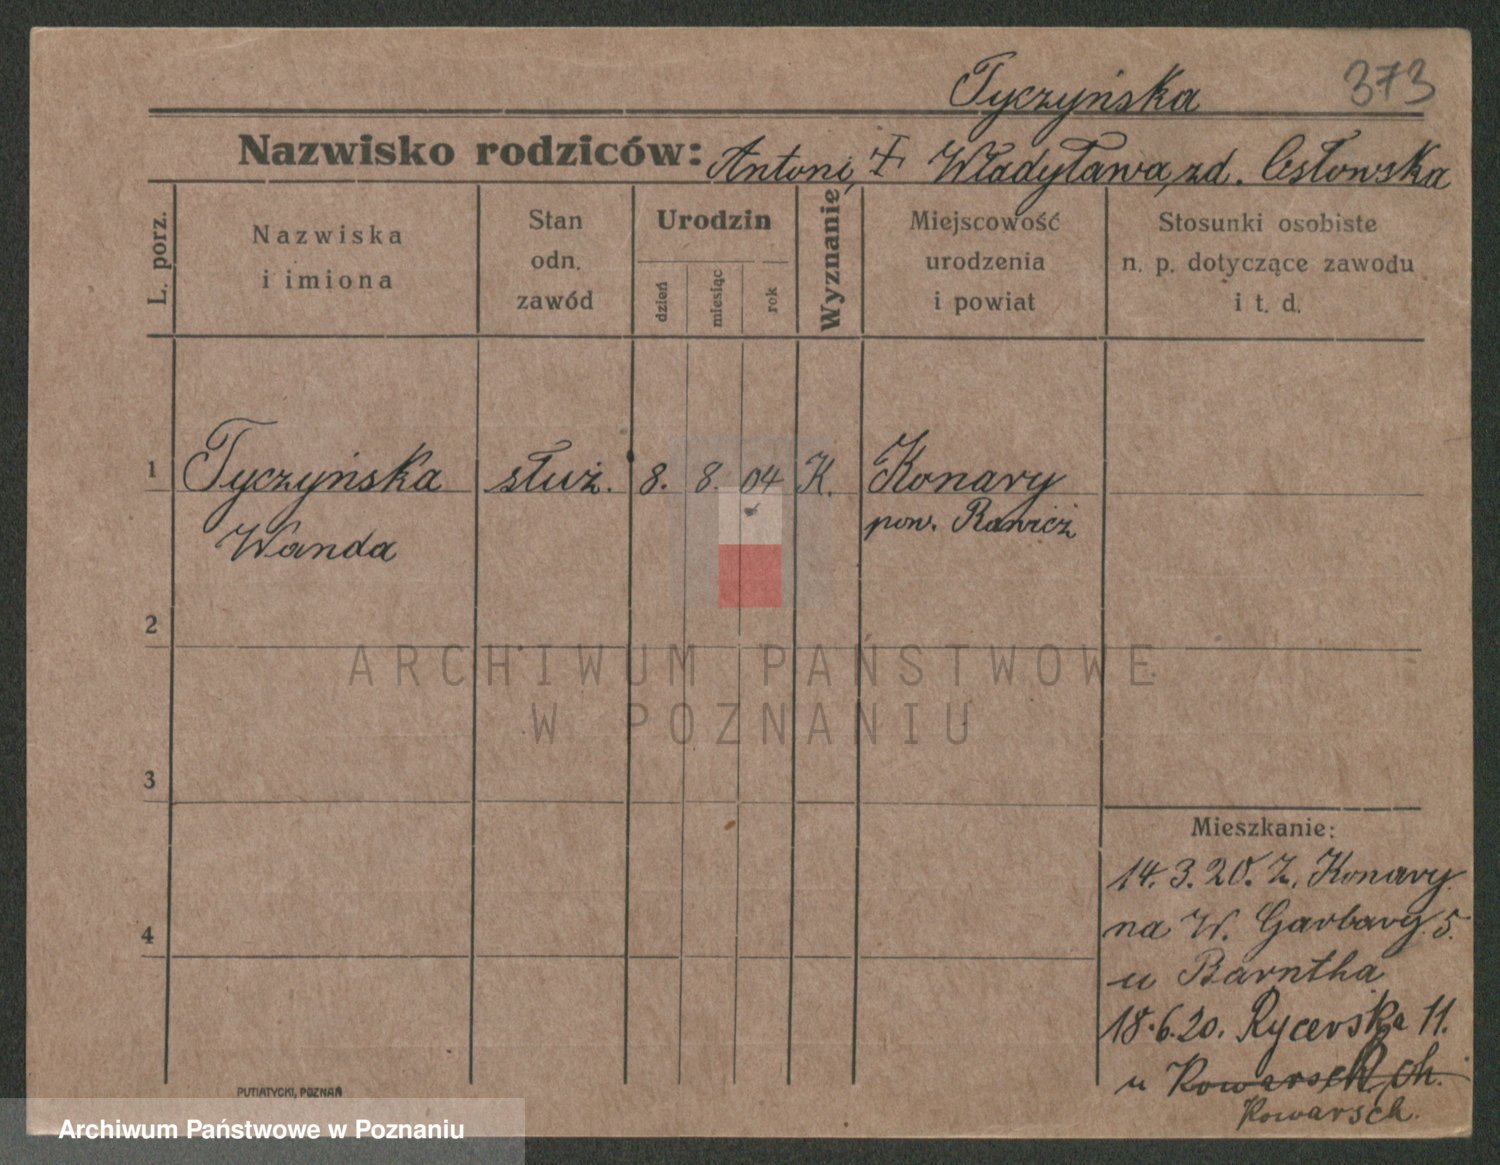 Tyczyńska 373
Nazwisko rodziców: Antoni, Władysława, zd. Cesłowska
L. porz.
Nazwiska
i imiona
Stan
odn.
zawód
Urodzin
dzień
miesiąc
rok
Wyznanie
Miejscowość
urodzenia
i powiat
Stosunki osobiste
n. p. dotyczące zawodu
i t. d.
1 Tyczyńska służ. 8. 8. 04 K. Konary
Wanda pow. Rawicz
2
ARCHIWUM PAŃSTWOWE
W POZNANIU
3
Mieszkanie:
14.3.20. z. Konary
4
na W. Garbary 5.
u Barntha
18.6.20. Rycerska 11.
u
Kowarsch.
PUTIATYCKI, POZNAŃ
Archiwum Państwowe w Poznaniu